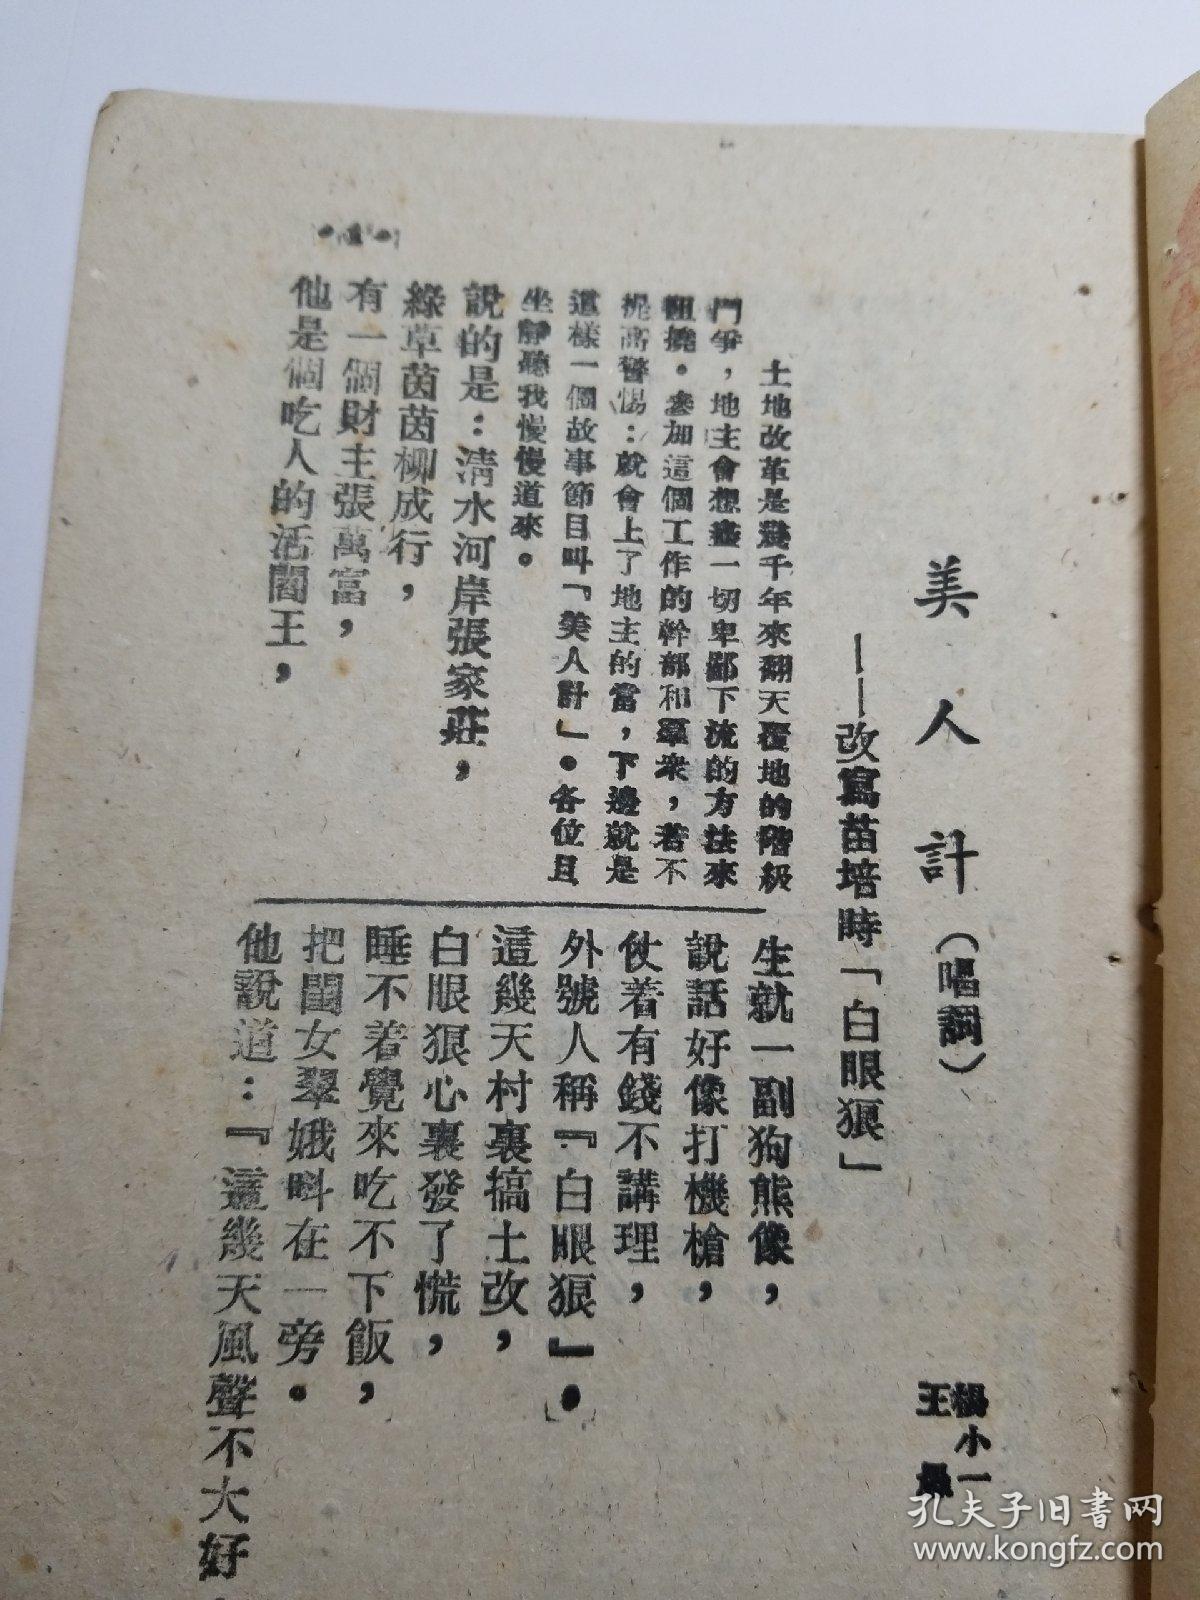 美人計（唱詞）
——改寫苗培時「白眼狼」
楊小一
王
土地改革是幾千年來翻天覆地的階級
鬥爭，地主會想盡一切卑鄙下流的方法來
阻撓。參加這個工作的幹部和羣衆，若不
提高警惕：就會上了地主的當，下邊就是
這樣一個故事節目叫「美人計」。各位且
坐靜聽我慢慢道來。
說的是：清水河岸張家莊，
綠草茵茵柳成行，
有一個財主張萬富，
他是個吃人的活閻王，
生就一副狗熊像，
說話好像打機槍，
仗着有錢不講理，
外號人稱『白眼狼』。
這幾天村裏搞土改，
白眼狼心裏發了慌，
睡不着覺來吃不下飯，
把閨女翠娥呌在一旁。
他說道：『這幾天風聲不大好
孔夫子旧书网
www.kongfz.com